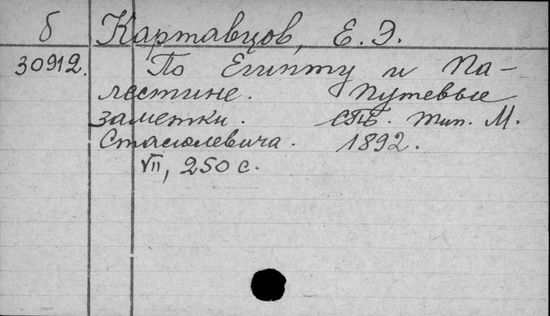 б Картавцов, Е. Э.
30912. По Египту и Па-
лестине. Путевые
заметки. СПБ. тип. М.
Стасюлевича. 1892.
VII, 250 с.